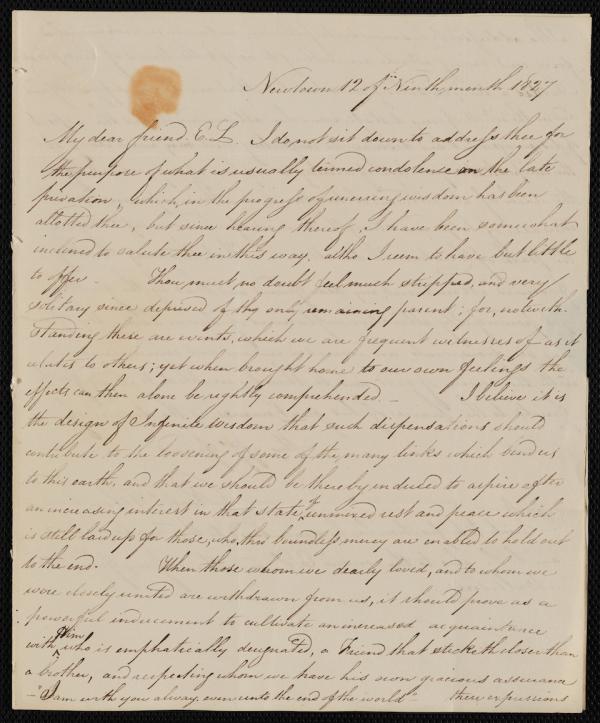 Newtown 12 of Ninth month 1827
My dear friend E. L. I do not sit down to address thee for
the purpose of what is usually termed condolence on the late
privation, which, in the progress of unerring wisdom has been
allotted thee, but since hearing thereof, I have been somewhat
inclined to salute thee in this way, altho I seem to have but little
to offer - Thou must no doubt feel much stripped, and very
solitary since deprived of thy only remaining parent; for, notwith-
standing these are events, which we are frequent witnesses of as it
relates to others; yet when brought home to our own feelings the
effects can then alone be rightly comprehended. - I believe it is
the design of Infinite wisdom that such dispensations should
contribute to the loosening of some of the many links which bind us
to this earth, and that we should be thereby induced to aspire after
an increasing interest in that state of unmoved rest and peace which
is still laid up for those, who, thro boundless mercy are enabled to hold out
to the end. When those whom we dearly loved, and to whom we
were closely united are withdrawn from us, it should prove as a
powerful inducement to cultivate an increased acquaintance
with Him who is emphatically designated, a Friend that sticketh closer than
a brother, and respecting whom we have his own gracious assurance
- "I am with you alway, even unto the end of the world" - these expressions